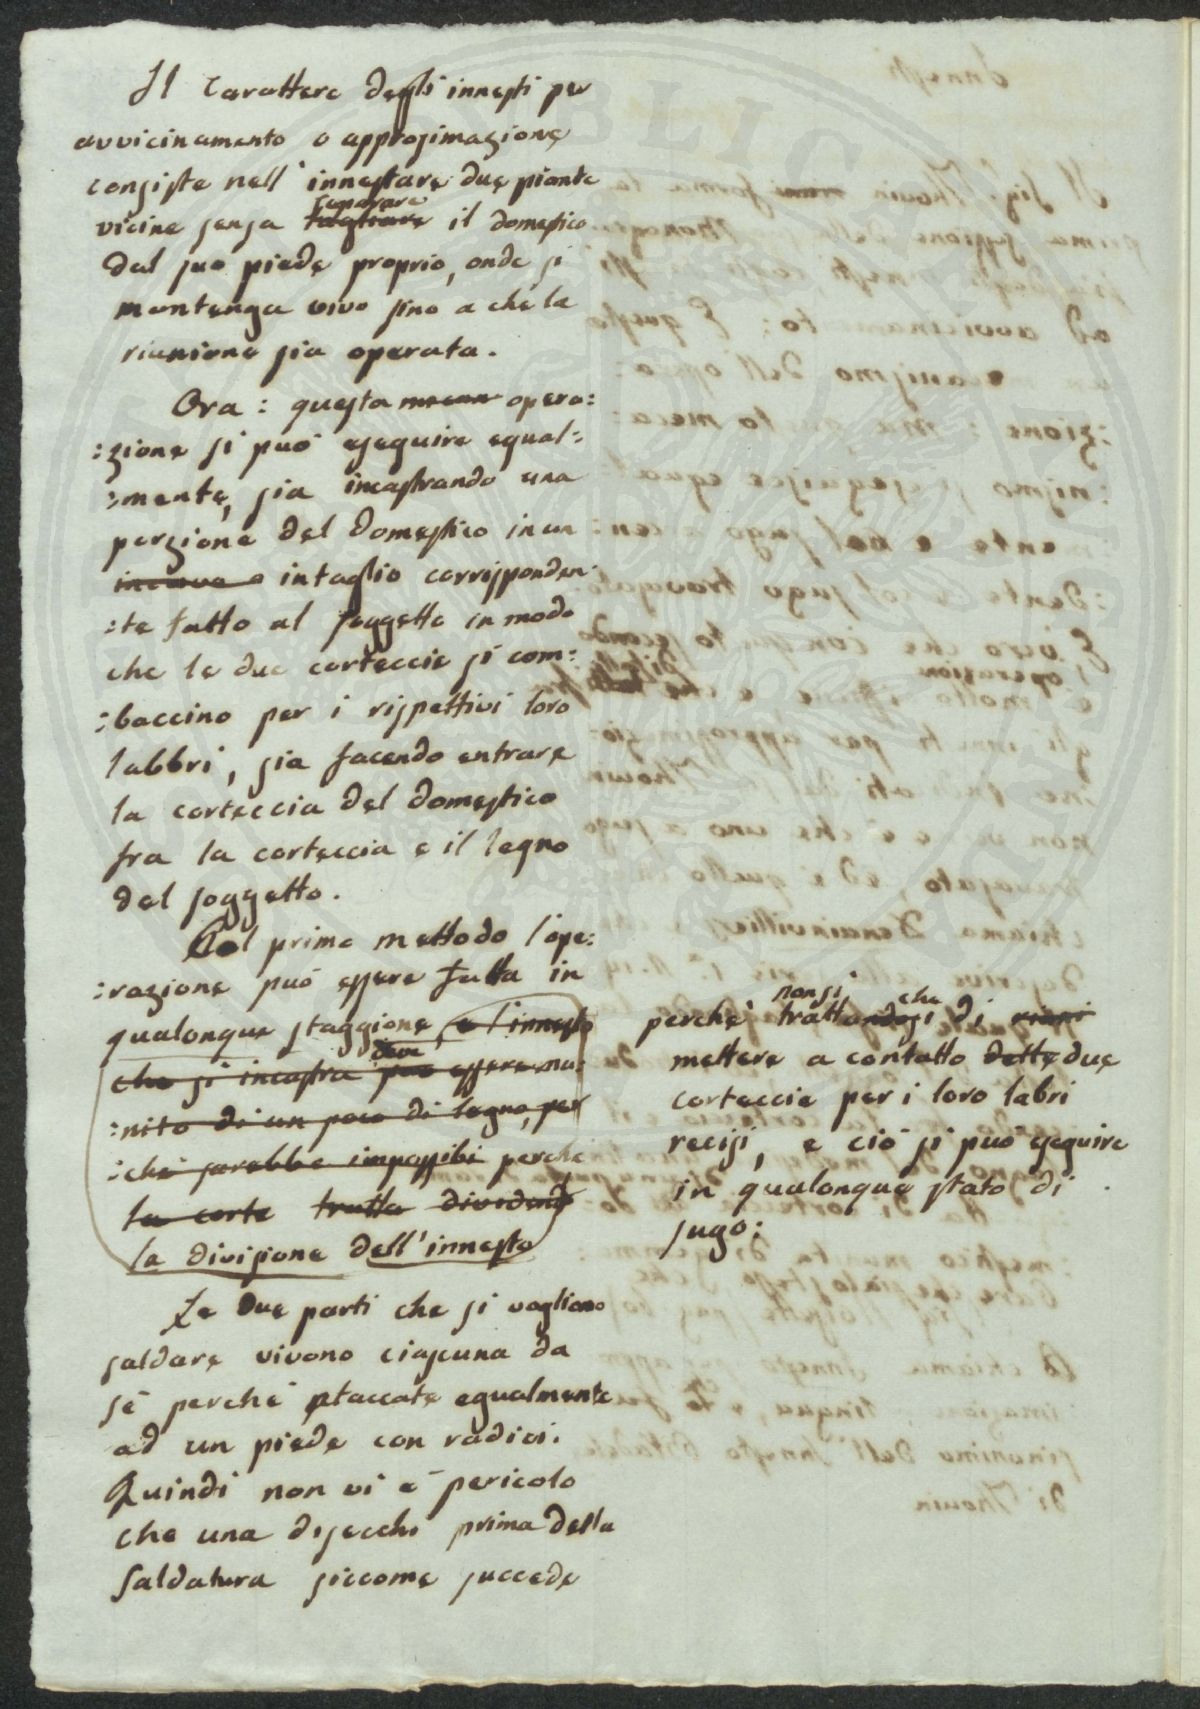 Il Carattere degli innesti per
avvicinamento o approsimazione
consiste nell' innestare due piante
separare
vicine senza tagliare il domestico
dal suo piede proprio, onde si
mantenga vivo sino a che la
riunione sia operata.
Ora: questa opera:
:zione si può eseguire egual:
:mente, sia incastrando una
porzione del domestico in un
incavo o intaglio corrisponden:
:te fatto al soggetto in modo
che le due corteccie si com:
:baccino per i rispettivi loro
labbri, sia facendo entrare
la corteccia del domestico
fra la corteccia e il legno
del soggetto.
Col primo mettodo l'ope:
:razione può essere fatta in
qualonque staggione, e l'innesto
deve
che si incastra può essere mu:
:nito di un poco di legno, per
:chè sarebbe impossibi perche
la corte tratta dividend
la divisione dell'innesto
non si che
perchè trattandosi di
mettere a contatto dette due
corteccie per i loro labri
recisi, e ciò si può eseguire
in qualonque stato di
sugo:
Le due parti che si vogliono
saldare vivono ciascuna da
sè perchè attaccate egualmente
ad un piede con radici.
Quindi non vi è pericolo
che una disecchi prima della
saldatura siccome succede